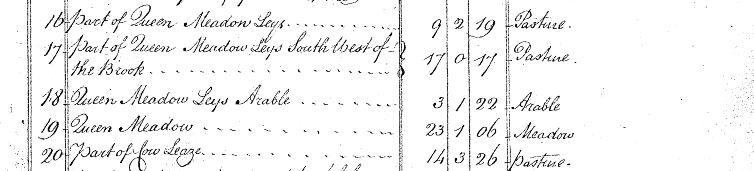 16 Part of Queen Meadow Leys 9 2 19 Pasture.
17 Part of Queen Meadow Leys South West of
the Brook 17 0 17 Pasture.
18 Queen Meadow Leys Arable 3 1 22 Arable
19 Queen Meadow 23 1 06 Meadow
20 Part of Cow Leaze 14 3 26 pasture.